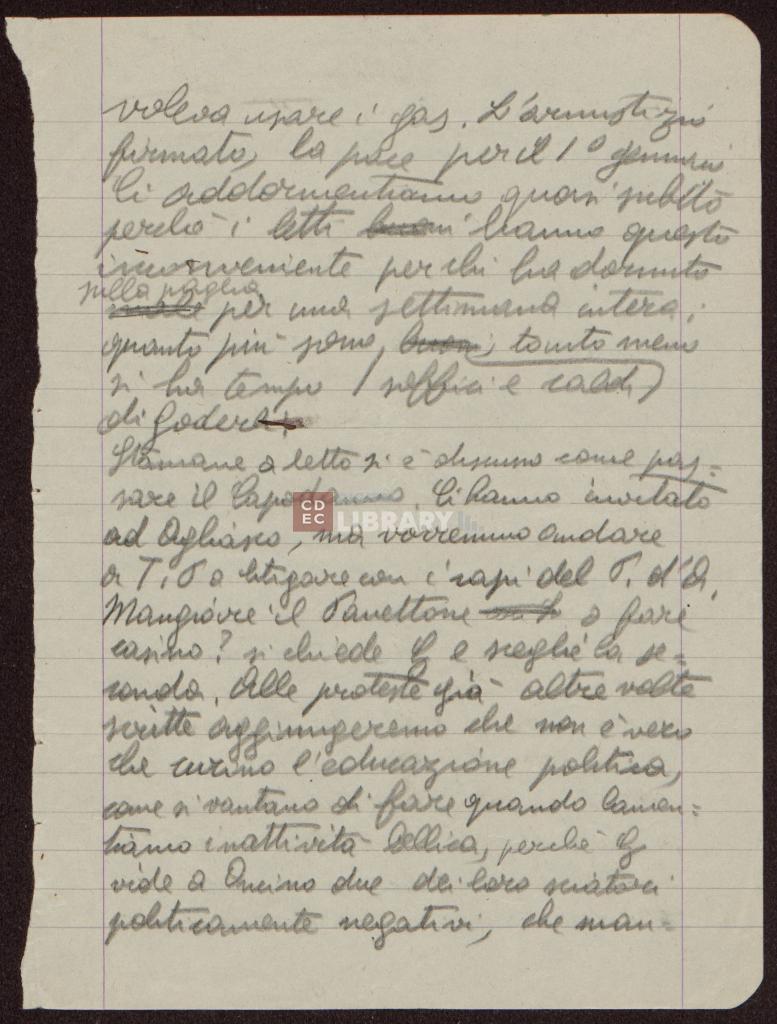 voleva usare i gas. L'armistizio
firmato, la pace per il 1° gennaio
Ci addormentiamo quasi subito
perchè i letti buoni hanno questo
inconveniente per chi ha dormito
sulla paglia
per una settimana intera:
quanto più sono buoni, tanto meno
si ha tempo / soffici e caldi /
di goderli.
Stamane a letto si è discusso come pas=
sare il Capodanno. Ci hanno invitato
ad Agliasco, ma vorremmo andare
a T. P. a litigare con i capi del P. d'A.
Mangiare il Panettone o fare
casino? si chiede e sceglie la se=
conda. Alle proteste già altre volte
scritte aggiungeremo che non è vero
che curino l'educazione politica,
come si vantano di fare quando lamen=
tiamo inattività bellica, perchè
vide a Oncino due dei loro sciatori
politicamente negativi, che man=
CDEC LIBRARY